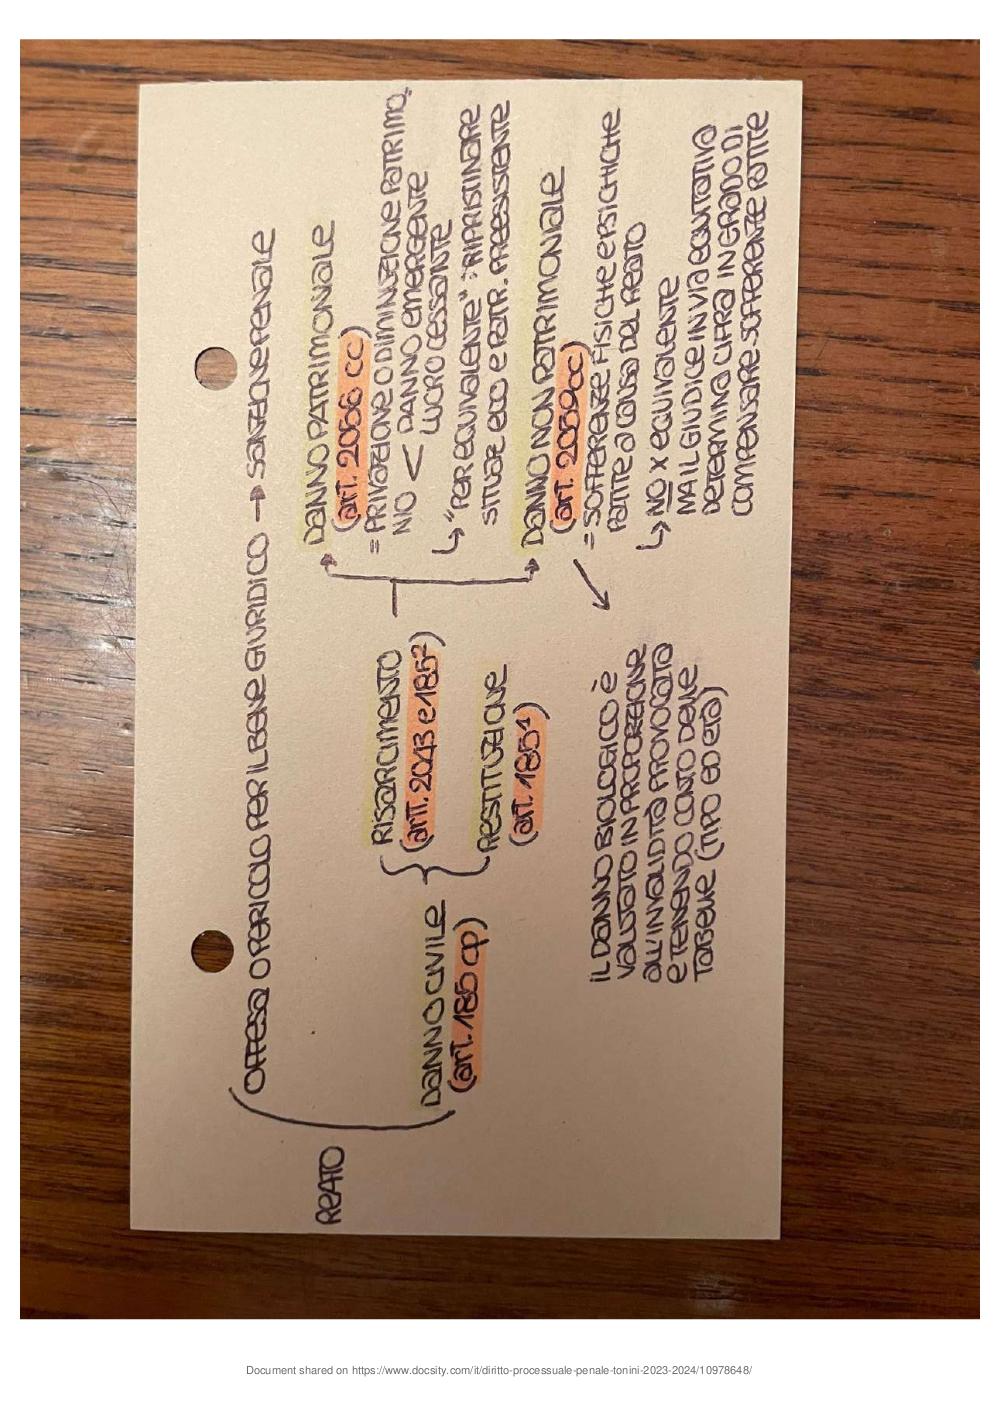 REATO
OFFESA O PERICOLO PER IL BENE GIURIDICO → SANZIONE PENALE
DANNO CIVILE
(art. 185 cp)
RISARCIMENTO
(art. 2043 e 185²)
RESTITUZIONE
(art. 185¹)
DANNO PATRIMONIALE
(art. 2056 cc)
= PRIVAZIONE O DIMINUZIONE PATRIMO_
NIO < DANNO EMERGENTE
LUCRO CESSANTE
↳ "PER EQUIVALENTE": RIPRISTINARE
SITUAZ ECO E PATR. PREESISTENTE
DANNO NON PATRIMONIALE
(art. 2059 cc)
= SOFFERENZE FISICHE E PSICHICHE
PATITE A CAUSA DEL REATO
↳ NO X EQUIVALENTE
MA IL GIUDICE IN VIA EQUITATIVA
DETERMINA CIFRA IN GRADO DI
COMPENSARE SOFFERENZE PATITE
IL DANNO BIOLOGICO È
VALUTATO IN PROPORZIONE
ALL'INVALIDITÀ PROVOCATA
E TENENDO CONTO DELLE
TABELLE (TIPO ED ETÀ)
Document shared on https://www.docsity.com/it/diritto-processuale-penale-tonini-2023-2024/10978648/